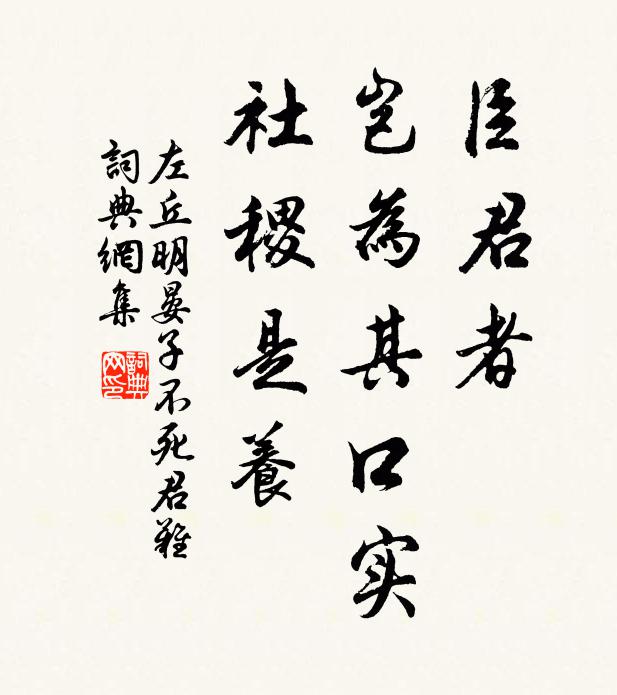 臣君者
岂為其口实
社稷是養
左丘明晏子不死君難
詞典網集
詞典
网印